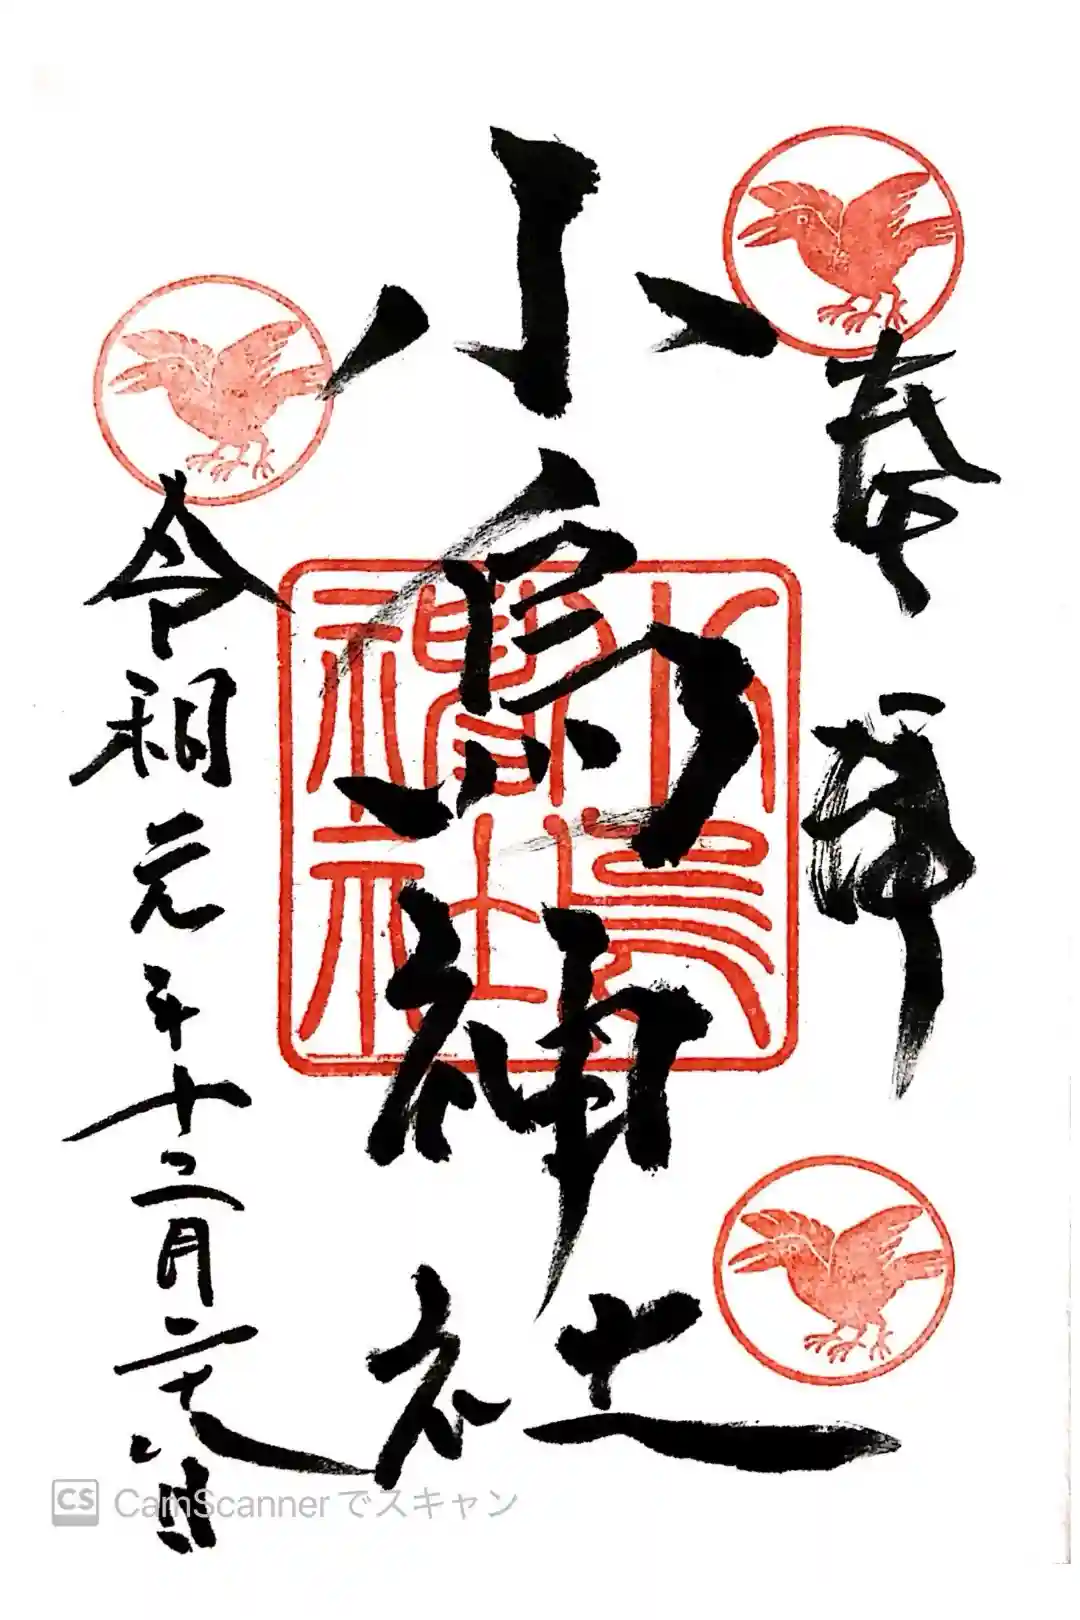 奉拝
小烏神社
小烏
神社
令和元年十二月二十八日
CS CamScannerでスキャン